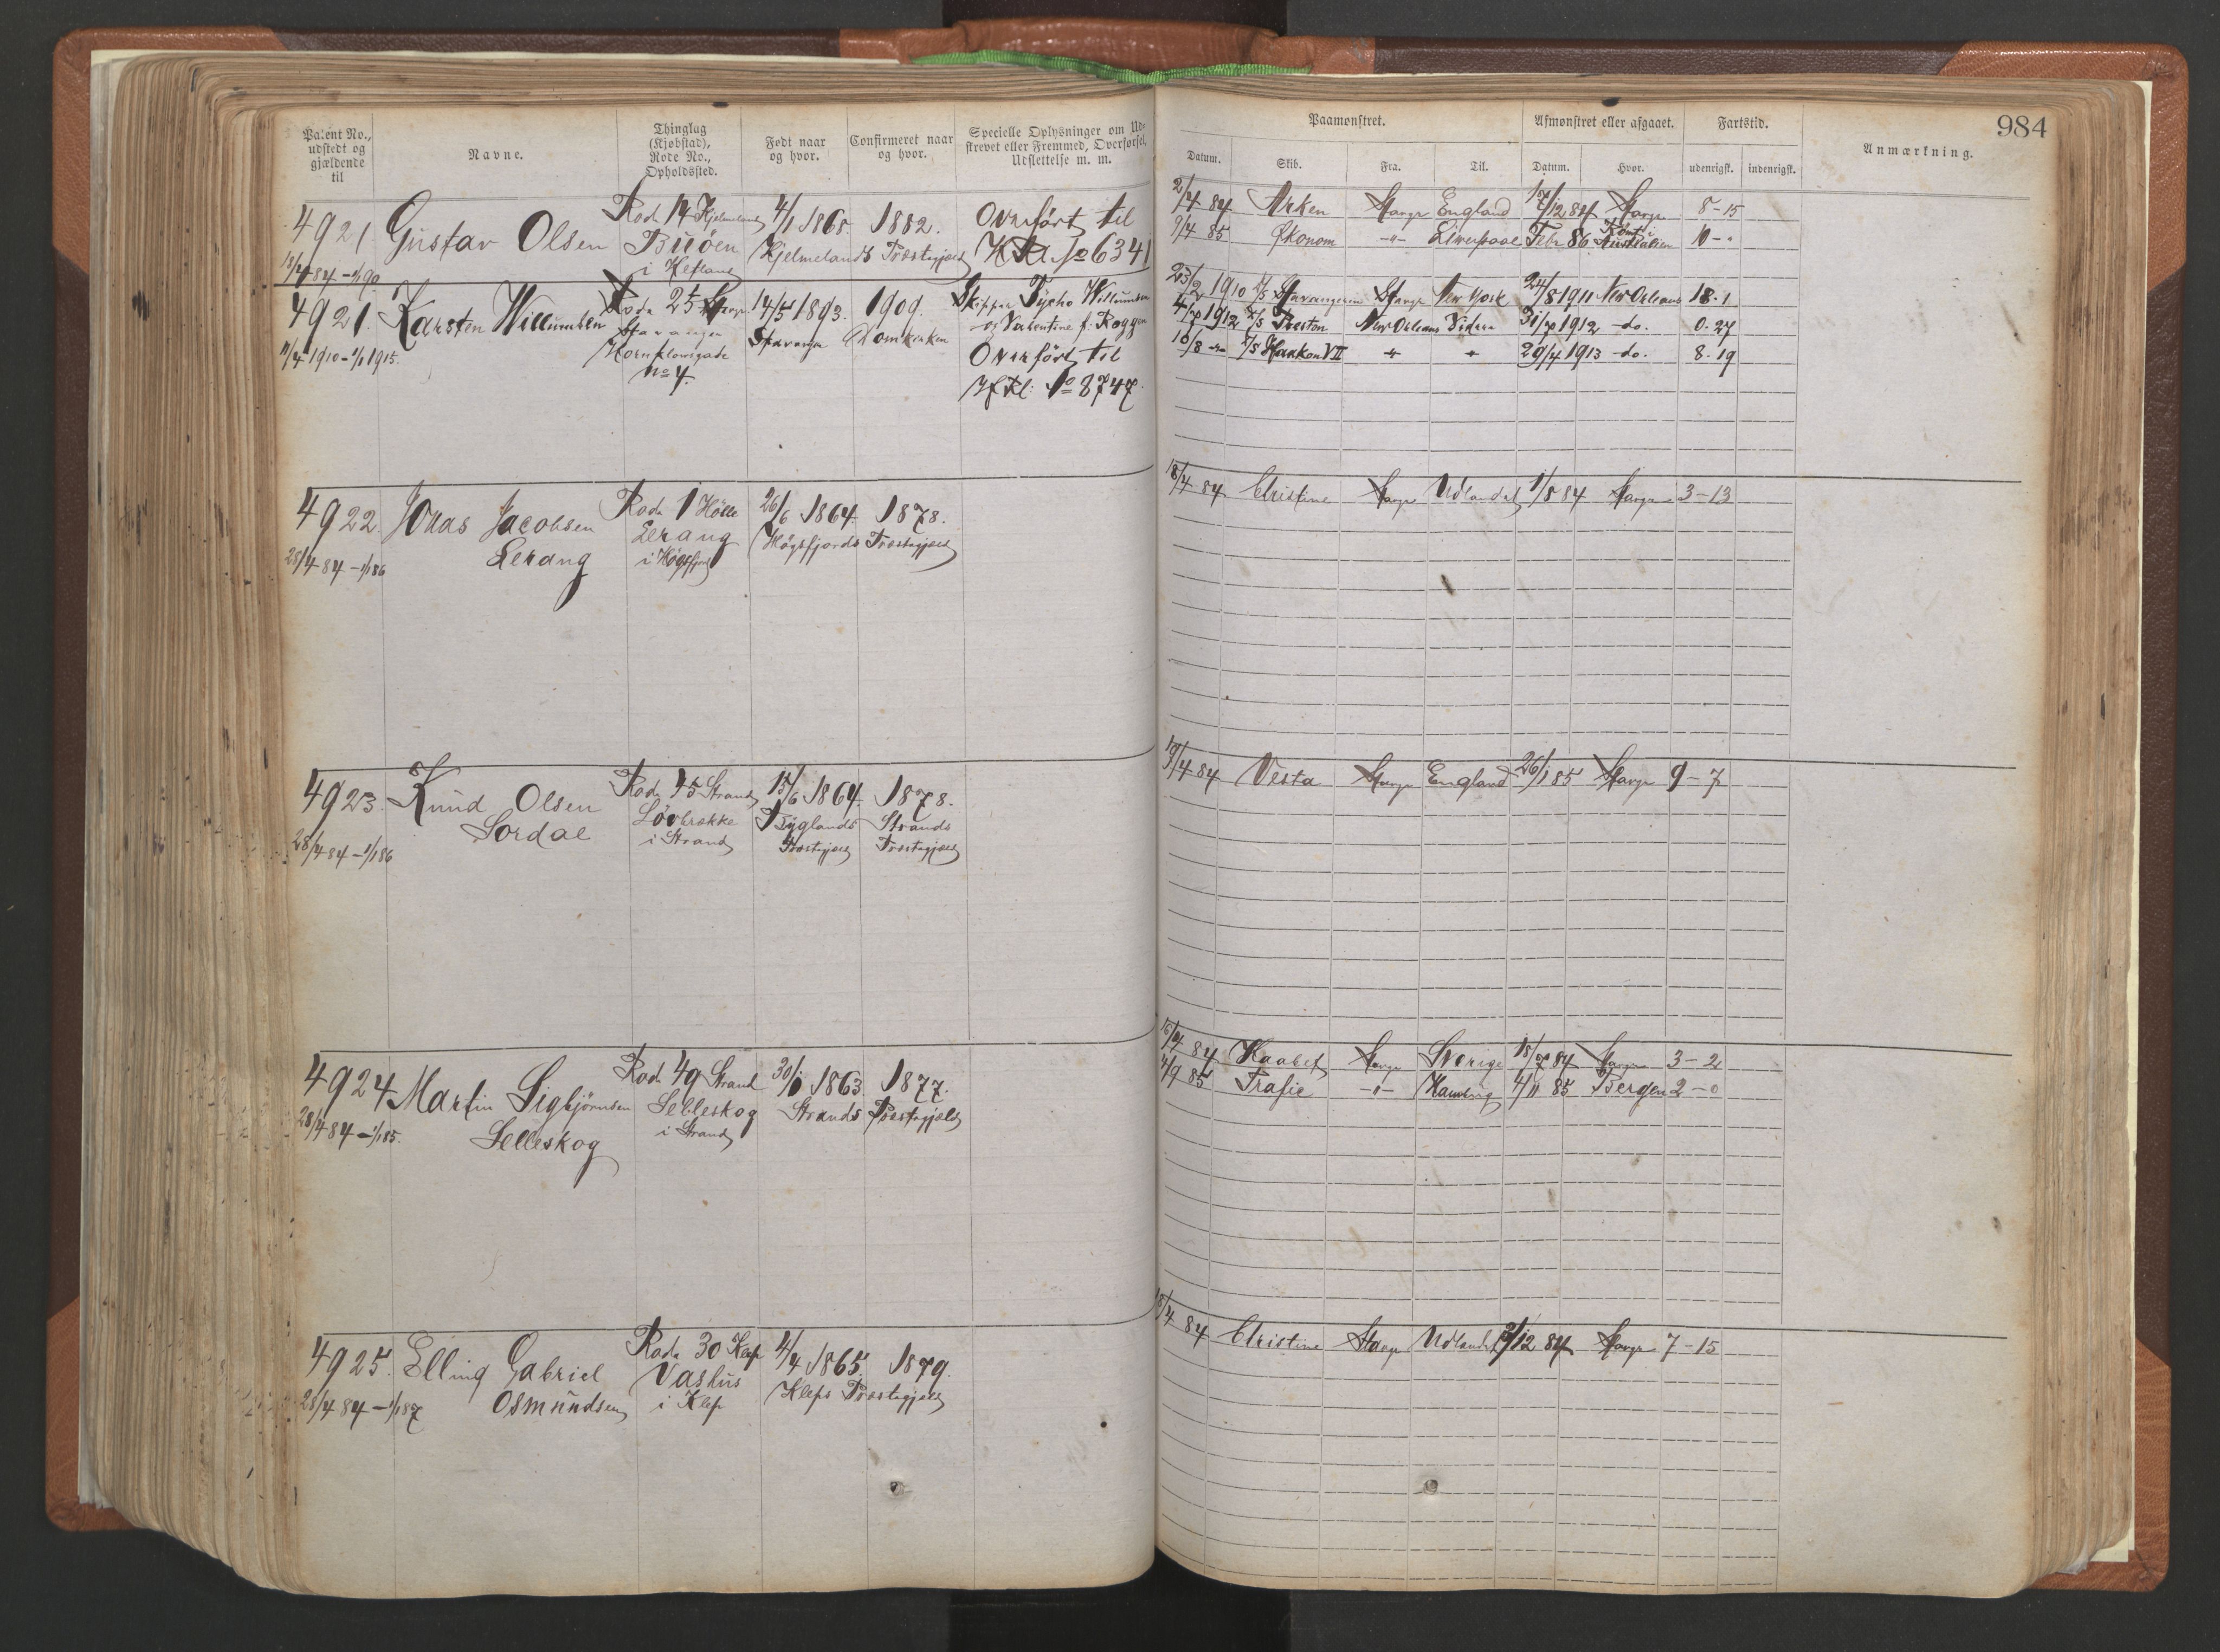 984
Patent No., udstedt og gjældende til
Navne.
Thinglag (Kjøbstad), Rode No., Opholdssted.
Født naar og hvor.
Confirmeret naar og hvor.
Specielle Oplysninger om Udskrevet eller Fremmed, Overførsel, Udslettelse m. m.
Paamønstret.
Afmønstret eller afgaaet.
Fartstid.
Anmærkning.
Datum. Skib. Fra. Til. Datum. Hvor. udenrigsk. indenrigsk.
4921 Gustav Olsen Rode 14 Hjelmeland 4/1 1865 1882. Overført til
Buöen Hjelmelands Præstegjeld H Kl. No 6341
i Hefland
18/4 84 – 1/1 90.
2/4 84 Arken Stavgr England 17/12 84 Stavgr 8-15
9/4 85 Økonom -"- Liverpool Febr 86 Rømt i Australien 10 - "
4921. Karsten Willumsen Rode 25 Stavgr 14/5 1893. 1909. Skipper Tycho Willumsen
Stavanger Stavanger Domkirken og Valentine f. Roggen
Hornklovesgade Overført til
No 4. H Kl: No 8747.
11/4 1910 – 1/1 1915.
23/2 1910 D/S Stavangeren Stavgr New York 24/8 1911 New Orleans 18. 1
4/7 1912 D/S Preston New Orleans Videre 31/7 1912 do. 0. 27
10/8 D/S Haakon VII " " 29/4 1913 do. 8. 19
4922. Jonas Jacobsen Rode 1 Hölle 26/6 1864. 1878.
Lerang Lerang Högsfjords Præstegjeld
i Høgsfjord
28/4 84 – 1/1 86
18/4 84 Christine Stavgr Udlandet 1/8 84 Stavgr 3-13
4923. Knud Olsen Rode 45 Strand 15/6 1864. 1878.
Lordal Lövbrække Byglands Strands
i Strand Præstegjeld Præstegjeld
28/4 84 – 1/1 86
19/4 84 Vesta Stavgr England 26/1 85 Stavgr 9-7
4924 Martin Sigbjörnsen Rode 49 Strand 1863. 1877.
Selleskog Selleskog Strands Præstegjeld
i Strand
28/4 84 – 1/1 85.
16/4 84 Haabet Stavgr Sverige 18/7 84 Stavgr 3-2
4/9 85 Trafic -"- Hamburg 4/11 85 Bergen 2-0
4925. Elling Gabriel Rode 30 Klep 4/4 1865. 1879.
Osmundsen Vashus Kleps Præstegjeld
i Klep
28/4 84 – 1/1 87
18/4 84 Christine Stavgr Udlandet 3/12 84 Stavgr 7-15